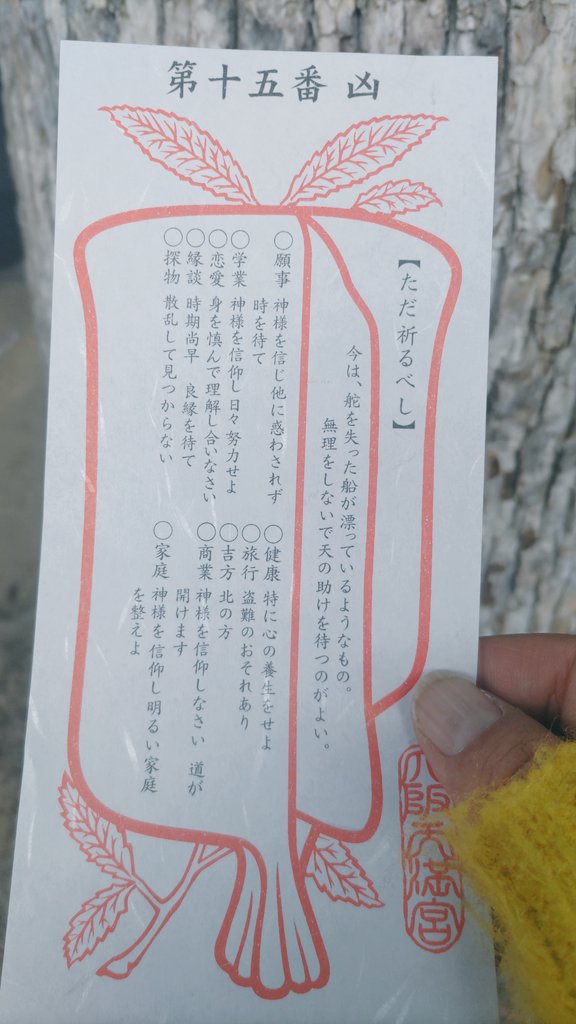 第十五番 凶
【ただ祈るべし】
今は、舵を失った船が漂っているようなもの。
無理をしないで天の助けを待つのがよい。
○願事 神様を信じ他に惑わされず
時を待て
○学業 神様を信仰し日々努力せよ
○恋愛 身を慎んで理解し合いなさい
○縁談 時期尚早 良縁を待て
○探物 散乱して見つからない
○健康 特に心の養生をせよ
○旅行 盗難のおそれあり
○吉方 北の方
○商業 神様を信仰しなさい 道が
開けます
○家庭 神様を信仰し明るい家庭
を整えよ
大阪天満宮